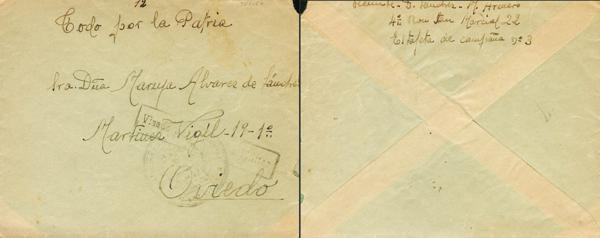 12
Todo por la Patria
Sra. Dña Maruja Alvarez de Sánchez
Visado
Martinez Vigil-19-1º
Oviedo
Remite- S. Sanchez- M. Armero
4º Bon San Marcial 22
Estafeta de campaña nº 3